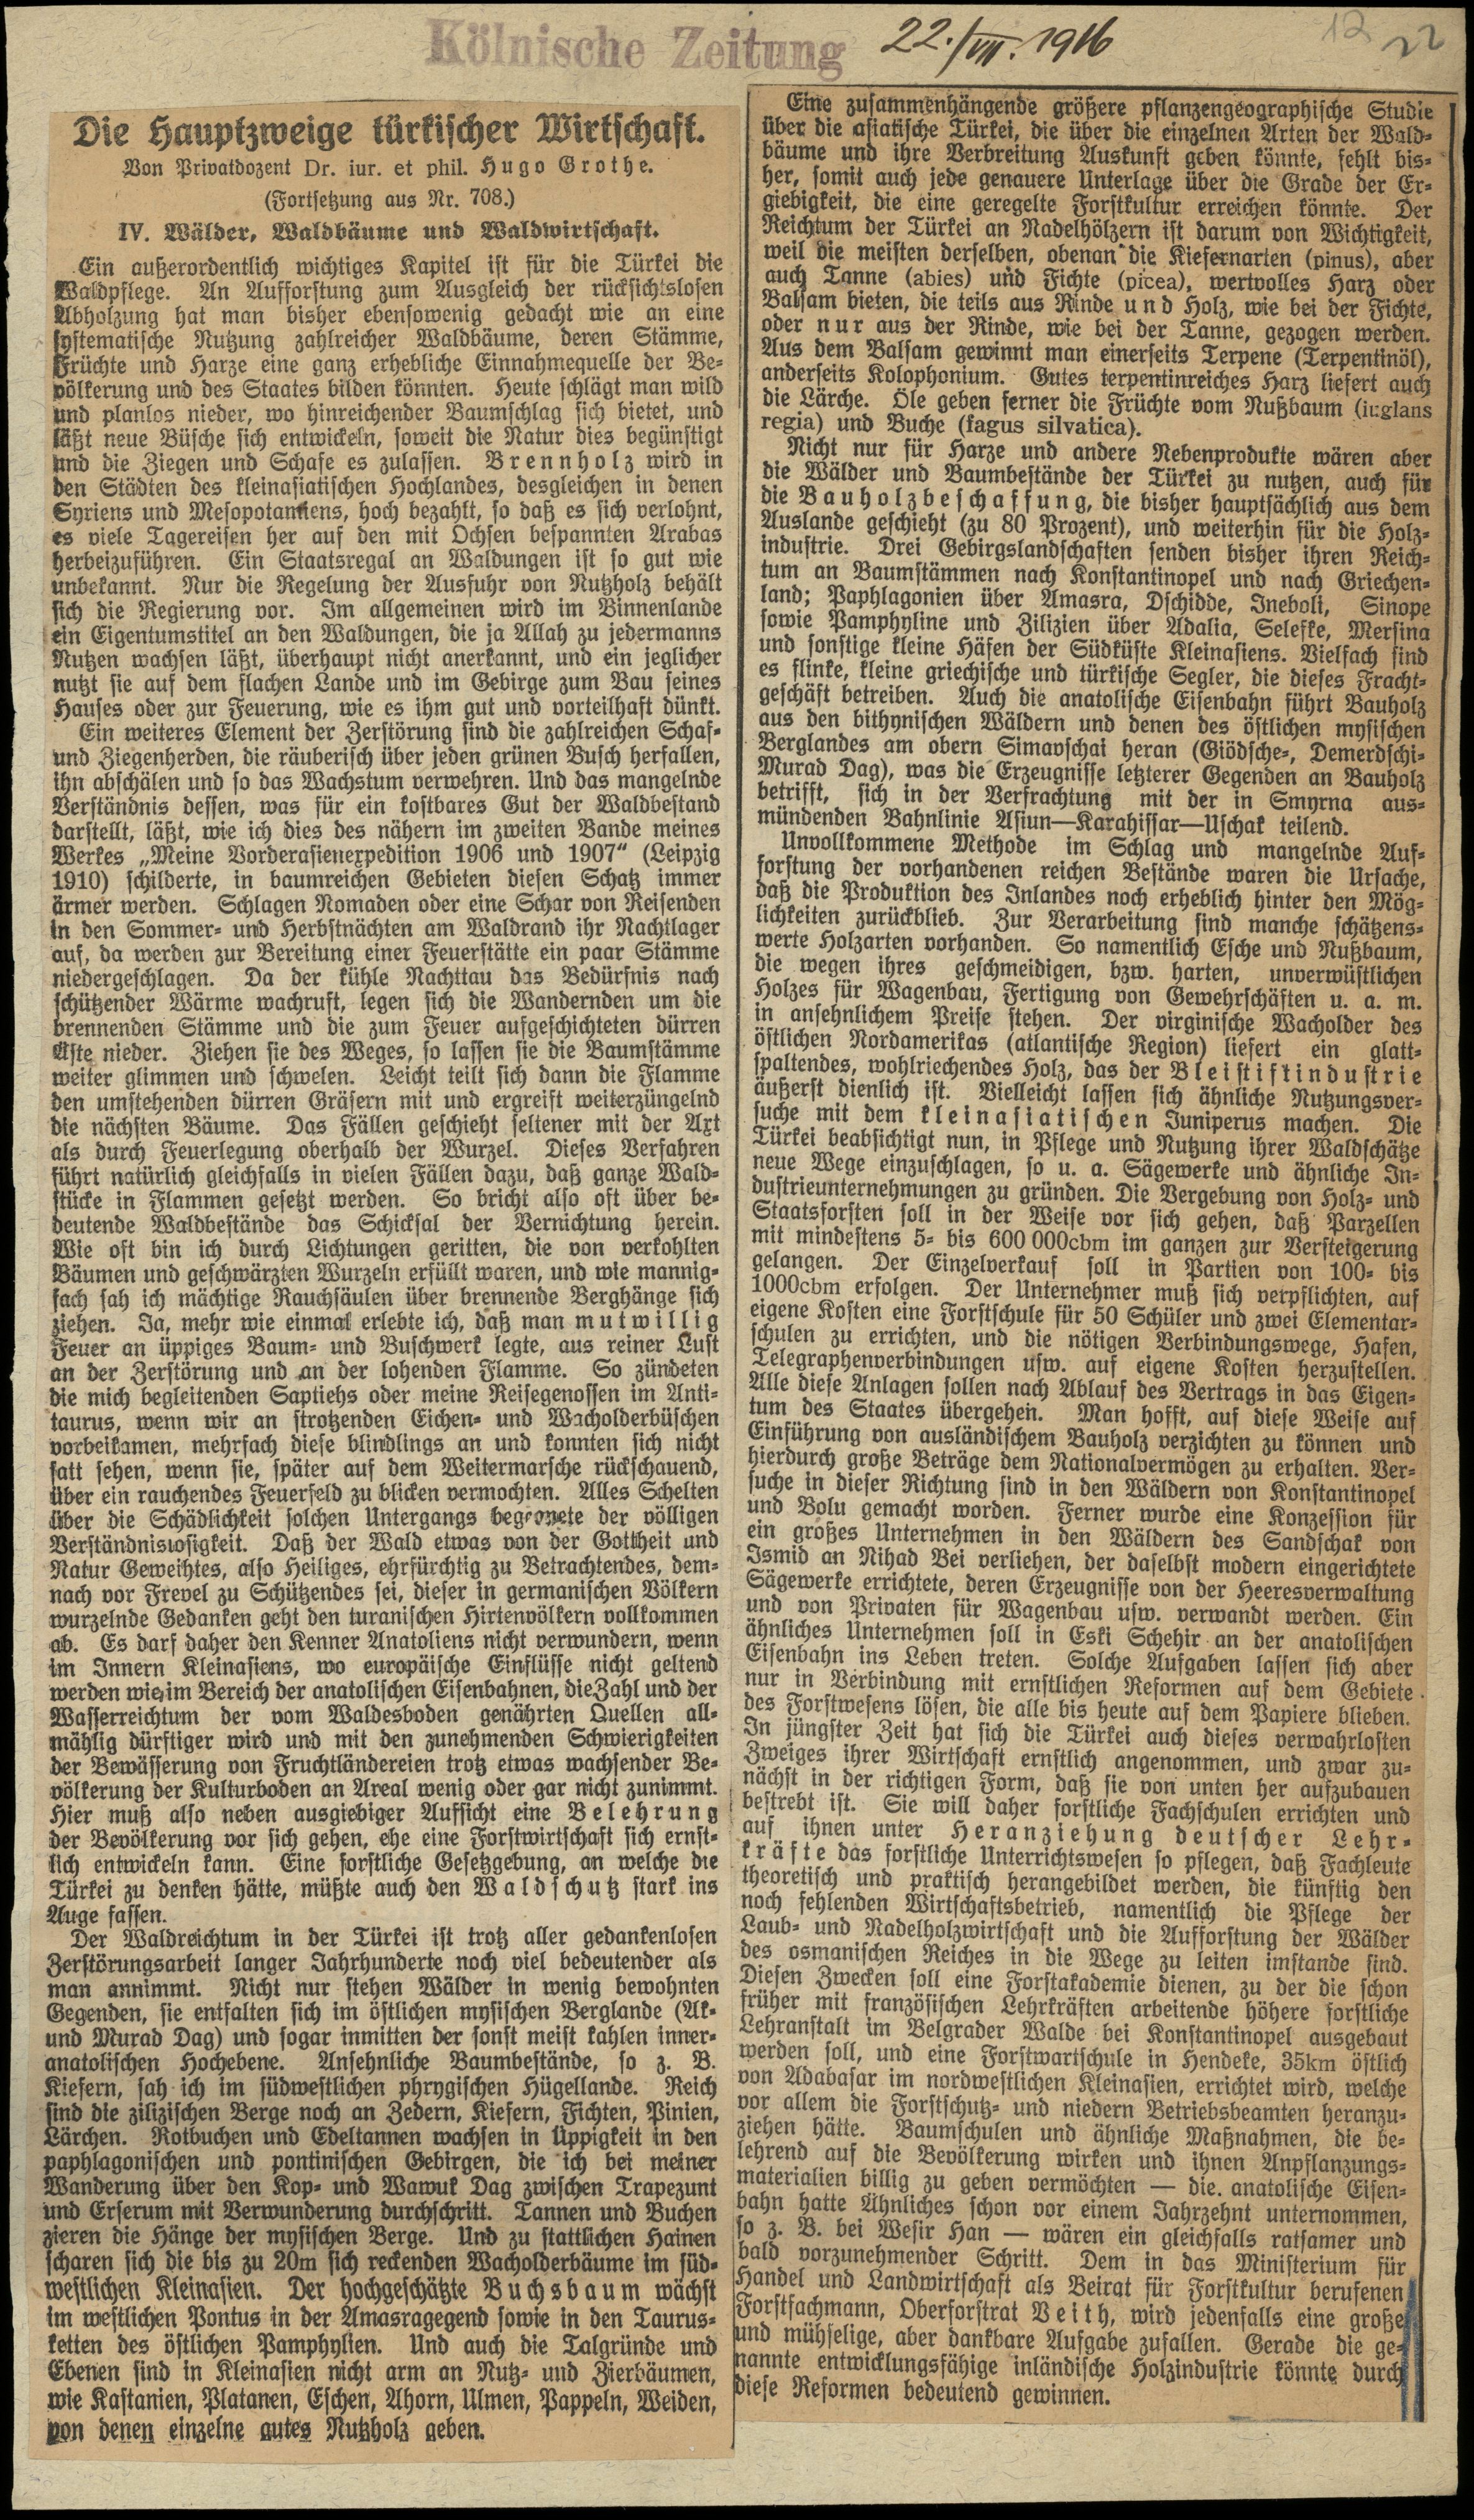 Kölnische Zeitung 22./VII. 1916
12 22
Die Hauptzweige türkischer Wirtschaft.
Von Privatdozent Dr. iur. et phil. Hugo Grothe.
(Fortsetzung aus Nr. 708.)
IV. Wälder, Waldbäume und Waldwirtschaft.
Ein außerordentlich wichtiges Kapitel ist für die Türkei die
Waldpflege. An Aufforstung zum Ausgleich der rücksichtslosen
Abholzung hat man bisher ebensowenig gedacht wie an eine
systematische Nutzung zahlreicher Waldbäume, deren Stämme,
Früchte und Harze eine ganz erhebliche Einnahmequelle der Be-
völkerung und des Staates bilden könnten. Heute schlägt man wild
und planlos nieder, wo hinreichender Baumschlag sich bietet, und
läßt neue Büsche sich entwickeln, soweit die Natur dies begünstigt
und die Ziegen und Schafe es zulassen. Brennholz wird in
den Städten des kleinasiatischen Hochlandes, desgleichen in denen
Syriens und Mesopotamiens, hoch bezahlt, so daß es sich verlohnt,
es viele Tagereisen her auf den mit Ochsen bespannten Arabas
herbeizuführen. Ein Staatsregal an Waldungen ist so gut wie
unbekannt. Nur die Regelung der Ausfuhr von Nutzholz behält
sich die Regierung vor. Im allgemeinen wird im Binnenlande
ein Eigentumstitel an den Waldungen, die ja Allah zu jedermanns
Nutzen wachsen läßt, überhaupt nicht anerkannt, und ein jeglicher
nutzt sie auf dem flachen Lande und im Gebirge zum Bau seines
Hauses oder zur Feuerung, wie es ihm gut und vorteilhaft dünkt.
Ein weiteres Element der Zerstörung sind die zahlreichen Schaf-
und Ziegenherden, die räuberisch über jeden grünen Busch herfallen,
ihn abschälen und so das Wachstum verwehren. Und das mangelnde
Verständnis dessen, was für ein kostbares Gut der Waldbestand
darstellt, läßt, wie ich dies des nähern im zweiten Bande meines
Werkes „Meine Vorderasienexpedition 1906 und 1907“ (Leipzig
1910) schilderte, in baumreichen Gebieten diesen Schatz immer
ärmer werden. Schlagen Nomaden oder eine Schar von Reisenden
in den Sommer- und Herbstnächten am Waldrand ihr Nachtlager
auf, da werden zur Bereitung einer Feuerstätte ein paar Stämme
niedergeschlagen. Da der kühle Nachttau das Bedürfnis nach
schützender Wärme wachruft, legen sich die Wandernden um die
brennenden Stämme und die zum Feuer aufgeschichteten dürren
Äste nieder. Ziehen sie des Weges, so lassen sie die Baumstämme
weiter glimmen und schwelen. Leicht teilt sich dann die Flamme
den umstehenden dürren Gräsern mit und ergreift weiterzüngelnd
die nächsten Bäume. Das Fällen geschieht seltener mit der Axt
als durch Feuerlegung oberhalb der Wurzel. Dieses Verfahren
führt natürlich gleichfalls in vielen Fällen dazu, daß ganze Wald-
stücke in Flammen gesetzt werden. So bricht also oft über be-
deutende Waldbestände das Schicksal der Vernichtung herein.
Wie oft bin ich durch Lichtungen geritten, die von verkohlten
Bäumen und geschwärzten Wurzeln erfüllt waren, und wie mannig-
fach sah ich mächtige Rauchsäulen über brennende Berghänge sich
ziehen. Ja, mehr wie einmal erlebte ich, daß man mutwillig
Feuer an üppiges Baum- und Buschwerk legte, aus reiner Lust
an der Zerstörung und an der lohenden Flamme. So zündeten
die mich begleitenden Saptiehs oder meine Reisegenossen im Anti-
taurus, wenn wir an strotzenden Eichen- und Wacholderbüschen
vorbeikamen, mehrfach diese blindlings an und konnten sich nicht
satt sehen, wenn sie, später auf dem Weitermarsche rückschauend,
über ein rauchendes Feuerfeld zu blicken vermochten. Alles Schelten
über die Schädlichkeit solchen Untergangs begegnete der völligen
Verständnislosigkeit. Daß der Wald etwas von der Gottheit und
Natur Geweihtes, also Heiliges, ehrfürchtig zu Betrachtendes, dem-
nach vor Frevel zu Schützendes sei, dieser in germanischen Völkern
wurzelnde Gedanken geht den turanischen Hirtenvölkern vollkommen
ab. Es darf daher den Kenner Anatoliens nicht verwundern, wenn
im Innern Kleinasiens, wo europäische Einflüsse nicht geltend
werden wie im Bereich der anatolischen Eisenbahnen, die Zahl und der
Wasserreichtum der vom Waldesboden genährten Quellen all-
mählig dürftiger wird und mit den zunehmenden Schwierigkeiten
der Bewässerung von Fruchtländereien trotz etwas wachsender Be-
völkerung der Kulturboden an Areal wenig oder gar nicht zunimmt.
Hier muß also neben ausgiebiger Aufsicht eine Belehrung
der Bevölkerung vor sich gehen, ehe eine Forstwirtschaft sich ernst-
lich entwickeln kann. Eine forstliche Gesetzgebung, an welche die
Türkei zu denken hätte, müßte auch den Waldschutz stark ins
Auge fassen.
Der Waldreichtum in der Türkei ist trotz aller gedankenlosen
Zerstörungsarbeit langer Jahrhunderte noch viel bedeutender als
man annimmt. Nicht nur stehen Wälder in wenig bewohnten
Gegenden, sie entfalten sich im östlichen mysischen Berglande (Ak-
und Murad Dag) und sogar inmitten der sonst meist kahlen inner-
anatolischen Hochebene. Ansehnliche Baumbestände, so z. B.
Kiefern, sah ich im südwestlichen phrygischen Hügellande. Reich
sind die zilizischen Berge noch an Zedern, Kiefern, Fichten, Pinien,
Lärchen. Rotbuchen und Edeltannen wachsen in Üppigkeit in den
paphlagonischen und pontinischen Gebirgen, die ich bei meiner
Wanderung über den Kop- und Wawuk Dag zwischen Trapezunt
und Erserum mit Verwunderung durchschritt. Tannen und Buchen
zieren die Hänge der mysischen Berge. Und zu stattlichen Hainen
scharen sich die bis zu 20m sich reckenden Wacholderbäume im süd-
westlichen Kleinasien. Der hochgeschätzte Buchsbaum wächst
im westlichen Pontus in der Amasragegend sowie in den Taurus-
ketten des östlichen Pamphylien. Und auch die Talgründe und
Ebenen sind in Kleinasien nicht arm an Nutz- und Zierbäumen,
wie Kastanien, Platanen, Eschen, Ahorn, Ulmen, Pappeln, Weiden,
von denen einzelne gutes Nutzholz geben.
Eine zusammenhängende größere pflanzengeographische Studie
über die asiatische Türkei, die über die einzelnen Arten der Wald-
bäume und ihre Verbreitung Auskunft geben könnte, fehlt bis-
her, somit auch jede genauere Unterlage über die Grade der Er-
giebigkeit, die eine geregelte Forstkultur erreichen könnte. Der
Reichtum der Türkei an Nadelhölzern ist darum von Wichtigkeit,
weil die meisten derselben, obenan die Kiefernarten (pinus), aber
auch Tanne (abies) und Fichte (picea), wertvolles Harz oder
Balsam bieten, die teils aus Rinde und Holz, wie bei der Fichte,
oder nur aus der Rinde, wie bei der Tanne, gezogen werden.
Aus dem Balsam gewinnt man einerseits Terpene (Terpentinöl),
anderseits Kolophonium. Gutes terpentinreiches Harz liefert auch
die Lärche. Öle geben ferner die Früchte vom Nußbaum (iuglans
regia) und Buche (fagus silvatica).
Nicht nur für Harze und andere Nebenprodukte wären aber
die Wälder und Baumbestände der Türkei zu nutzen, auch für
die Bauholzbeschaffung, die bisher hauptsächlich aus dem
Auslande geschieht (zu 80 Prozent), und weiterhin für die Holz-
industrie. Drei Gebirgslandschaften senden bisher ihren Reich-
tum an Baumstämmen nach Konstantinopel und nach Griechen-
land; Paphlagonien über Amasra, Dschidde, Ineboli, Sinope
sowie Pamphyline und Zilizien über Adalia, Selefke, Mersina
und sonstige kleine Häfen der Südküste Kleinasiens. Vielfach sind
es flinke, kleine griechische und türkische Segler, die dieses Fracht-
geschäft betreiben. Auch die anatolische Eisenbahn führt Bauholz
aus den bithynischen Wäldern und denen des östlichen mysischen
Berglandes am obern Simavschai heran (Giödsche-, Demerdschi-
Murad Dag), was die Erzeugnisse letzterer Gegenden an Bauholz
betrifft, sich in der Verfrachtung mit der in Smyrna aus-
mündenden Bahnlinie Afiun—Karahissar—Uschak teilend.
Unvollkommene Methode im Schlag und mangelnde Auf-
forstung der vorhandenen reichen Bestände waren die Ursache,
daß die Produktion des Inlandes noch erheblich hinter den Mög-
lichkeiten zurückblieb. Zur Verarbeitung sind manche schätzens-
werte Holzarten vorhanden. So namentlich Esche und Nußbaum,
die wegen ihres geschmeidigen, bzw. harten, unverwüstlichen
Holzes für Wagenbau, Fertigung von Gewehrschäften u. a. m.
in ansehnlichem Preise stehen. Der virginische Wacholder des
östlichen Nordamerikas (atlantische Region) liefert ein glatt-
spaltendes, wohlriechendes Holz, das der Bleistiftindustrie
äußerst dienlich ist. Vielleicht lassen sich ähnliche Nutzungsver-
suche mit dem kleinasiatischen Juniperus machen. Die
Türkei beabsichtigt nun, in Pflege und Nutzung ihrer Waldschätze
neue Wege einzuschlagen, so u. a. Sägewerke und ähnliche In-
dustrieunternehmungen zu gründen. Die Vergebung von Holz- und
Staatsforsten soll in der Weise vor sich gehen, daß Parzellen
mit mindestens 5- bis 600 000cbm im ganzen zur Versteigerung
gelangen. Der Einzelverkauf soll in Partien von 100- bis
1000cbm erfolgen. Der Unternehmer muß sich verpflichten, auf
eigene Kosten eine Forstschule für 50 Schüler und zwei Elementar-
schulen zu errichten, und die nötigen Verbindungswege, Hafen,
Telegraphenverbindungen usw. auf eigene Kosten herzustellen.
Alle diese Anlagen sollen nach Ablauf des Vertrags in das Eigen-
tum des Staates übergehen. Man hofft, auf diese Weise auf
Einführung von ausländischem Bauholz verzichten zu können und
hierdurch große Beträge dem Nationalvermögen zu erhalten. Ver-
suche in dieser Richtung sind in den Wäldern von Konstantinopel
und Bolu gemacht worden. Ferner wurde eine Konzession für
ein großes Unternehmen in den Wäldern des Sandschak von
Ismid an Nihad Bei verliehen, der daselbst modern eingerichtete
Sägewerke errichtete, deren Erzeugnisse von der Heeresverwaltung
und von Privaten für Wagenbau usw. verwandt werden. Ein
ähnliches Unternehmen soll in Eski Schehir an der anatolischen
Eisenbahn ins Leben treten. Solche Aufgaben lassen sich aber
nur in Verbindung mit ernstlichen Reformen auf dem Gebiete
des Forstwesens lösen, die alle bis heute auf dem Papiere blieben.
In jüngster Zeit hat sich die Türkei auch dieses verwahrlosten
Zweiges ihrer Wirtschaft ernstlich angenommen, und zwar zu-
nächst in der richtigen Form, daß sie von unten her aufzubauen
bestrebt ist. Sie will daher forstliche Fachschulen errichten und
auf ihnen unter Heranziehung deutscher Lehr-
kräfte das forstliche Unterrichtswesen so pflegen, daß Fachleute
theoretisch und praktisch herangebildet werden, die künftig den
noch fehlenden Wirtschaftsbetrieb, namentlich die Pflege der
Laub- und Nadelholzwirtschaft und die Aufforstung der Wälder
des osmanischen Reiches in die Wege zu leiten imstande sind.
Diesen Zwecken soll eine Forstakademie dienen, zu der die schon
früher mit französischen Lehrkräften arbeitende höhere forstliche
Lehranstalt im Belgrader Walde bei Konstantinopel ausgebaut
werden soll, und eine Forstwartschule in Hendeke, 35km östlich
von Adabasar im nordwestlichen Kleinasien, errichtet wird, welche
vor allem die Forstschutz- und niedern Betriebsbeamten heranzu-
ziehen hätte. Baumschulen und ähnliche Maßnahmen, die be-
lehrend auf die Bevölkerung wirken und ihnen Anpflanzungs-
materialien billig zu geben vermöchten — die anatolische Eisen-
bahn hatte Ähnliches schon vor einem Jahrzehnt unternommen,
so z. B. bei Wesir Han — wären ein gleichfalls ratsamer und
bald vorzunehmender Schritt. Dem in das Ministerium für
Handel und Landwirtschaft als Beirat für Forstkultur berufenen
Forstfachmann, Oberforstrat Veith, wird jedenfalls eine große
und mühselige, aber dankbare Aufgabe zufallen. Gerade die ge-
nannte entwicklungsfähige inländische Holzindustrie könnte durch
diese Reformen bedeutend gewinnen.